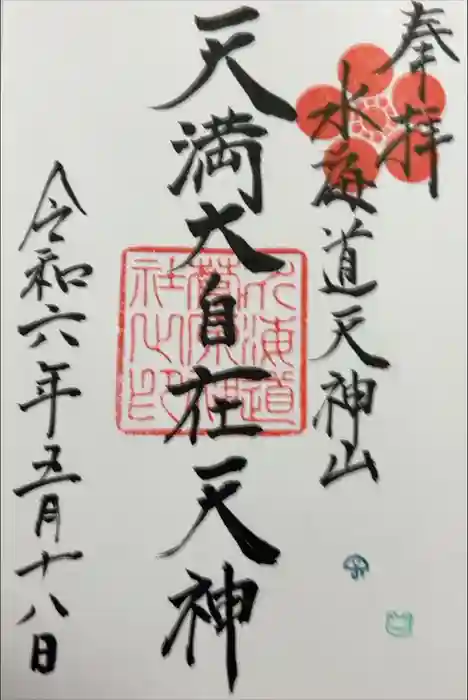 奉拝
水海道天神山
天満大自在天神
水海道
菅原神
社之印
令和六年五月十八日